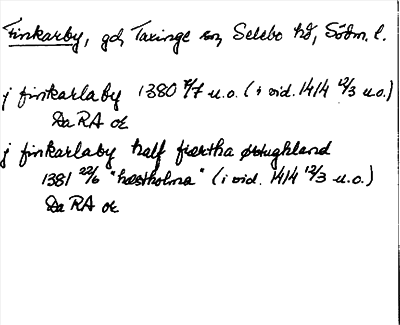 Finkarby, gd, Taxinge sn, Selebo hd, Södm. l.
j finkarlaby 1380 7/7 u.o. (i vid. 1414 12/3 u.o.)
Da RA or
j finkarlaby half fiærtha øræughland
1381 22/6 "hæstholma" (i vid. 1414 12/3 u.o.)
Da RA or